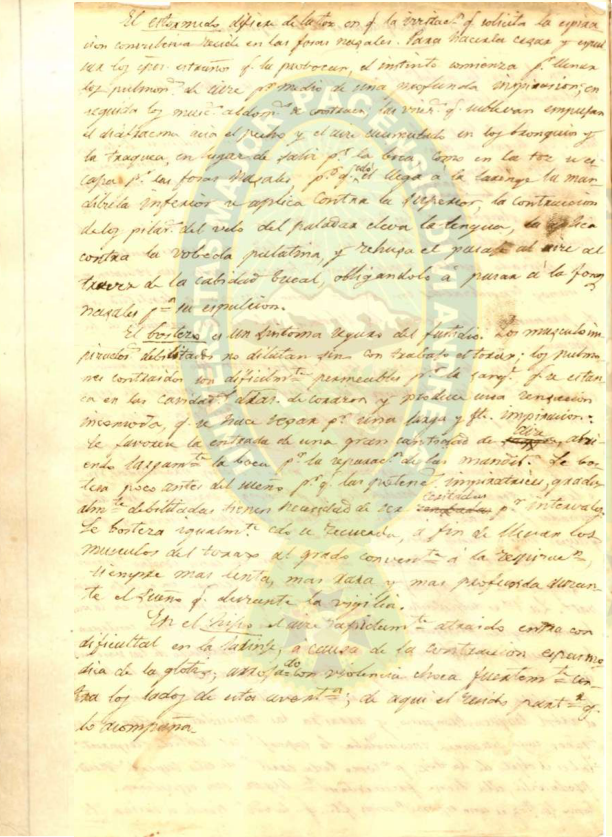 El estornudo difiere de la tos en q. la irritacn q. solicita la espira
cion convulsiva recide en las fosas nasales. Para hacerla cesar y espul
sar los cpos estraños q. la probocan, el instinto comienza pr. llenar
los pulmons de aire pr. medio de una profunda inspiracion; en
seguida los muscs abdoms se contraen, las viscs q. sublevan empujan
el diafracma acia el pecho y el aire acumulado en los bronquios y
la traquea, en lugar de salir pr. la boca como en la tos se es
capa pr. las fosas nasales llega a la laringe la man
dibula inferior se aplica contra la superior, la contraccion
de los pilars del velo del paladar eleva la lengua, la aplica
contra la vobeda palatina, y rehusa el pasaje al aire al
travez de la cabidad bucal, obligandolo á pasar á la fosas
nasales pa su espulcion.
El bostezo es un sintoma seguro del fastidio. Los musculos ins
piradors debilitados no dilatan sino con trabajo el torax; los pulmo
nes contraidos son dificilmte permeables pr. la sangr. q. se estan
ca en las cavidads dras. de corazon y produce una sensacion
incomoda, q. se hace cesar pr. una larga y fte. inspiracion.
Se favorece la entrada de una gran cantidad de aire abri
endo largamte la boca pr. la separacn de las mandis. Se bos
teza poco antes del sueño pr. q. las potencs inspiratrices, gradu
almte debilitadas tienen necesidad de ser pr. intervalos
Se bosteza igualmte cdo se recuerda, a fin de llevar los
musculos del torax al grado convente á la respiracn,
siempre mas lenta, mas rara y mas profunda duran
te el sueno q. durante la vigilia.
En el hipo el aire atraido entra con
dificultal en la laringe, a causa de la contracion espasmo
dica de la glotis; con violencia choca fuertemte con
tra los lados de esta; de aqui el ruido q.
lo acompaña.